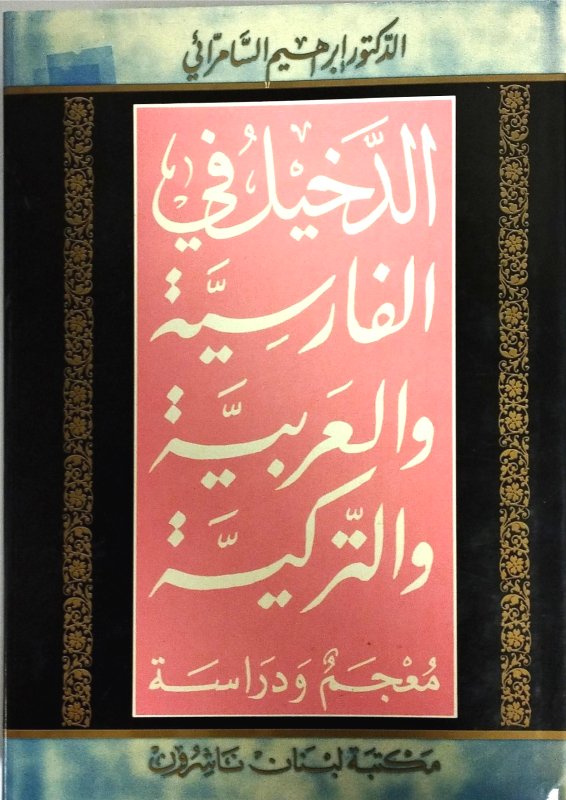 الدكتور إبراهيم السَّامرّائي
الدَّخيلُ في
الفارسيَّة
والعَربيَّة
والتّركيَّة
مُعْجَمٌ وَدرَاسَة
مكتبة لبنان ناشرون